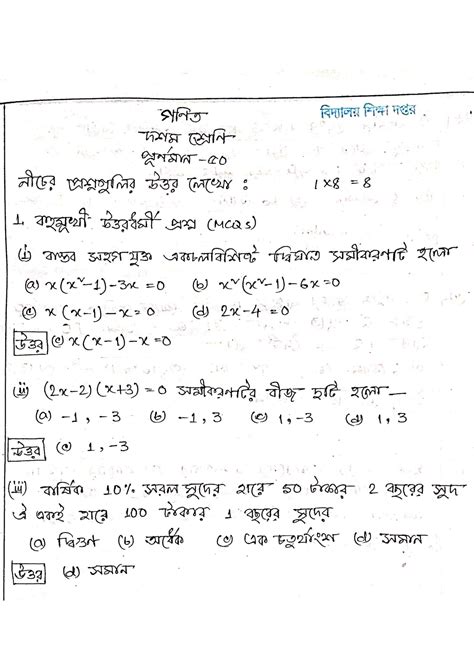 গণিত
বিদ্যালয় শিক্ষা দপ্তর
দশম শ্রেণি
পূর্ণমান -৫০
নীচের প্রশ্নগুলির উত্তর লেখো : 1×8 = 8
1. বহুমুখী উত্তরধর্মী প্রশ্ন (MCQs)
(i) বাস্তব সহগ যুক্ত একচলবিশিষ্ট দ্বিঘাত সমীকরণটি হলো
(a) x(x²-1)-3x=0 (b) x²(x²-1)-6x=0
(c) x(x-1)-x=0 (d) 2x-4=0
উত্তর (c) x(x-1)-x=0
(ii) (2x-2)(x+3)=0 সমীকরণটির বীজ দুটি হলো—
(a) -1, -3 (b) -1, 3 (c) 1, -3 (d) 1, 3
উত্তর (c) 1, -3
(iii) বার্ষিক 10% সরল সুদের হারে 50 টাকার 2 বছরের সুদ
ঐ একই হারে 100 টাকার 1 বছরের সুদের
(a) দ্বিগুণ (b) অর্ধেক (c) এক চতুর্থাংশ (d) সমান
উত্তর (d) সমান